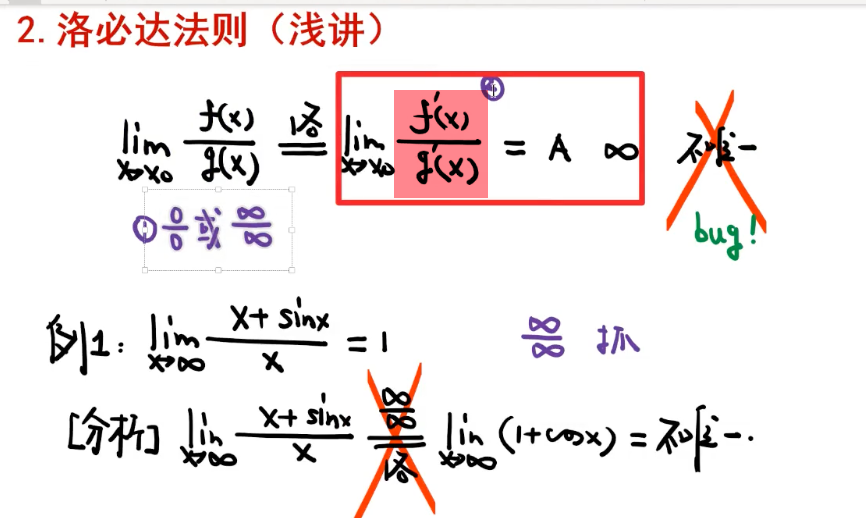 2. 洛必达法则（浅讲）
lim x→x₀ f(x)/g(x) 洛= lim x→x₀ f'(x)/g'(x) = A ∞ 不唯一
② 
① 0/0 或 ∞/∞
bug!
例1: lim x→∞ (x+sinx)/x = 1 ∞/∞ 抓
[分析] lim x→∞ (x+sinx)/x ∞/∞ 洛= lim x→∞ (1+cosx) = 不唯一.